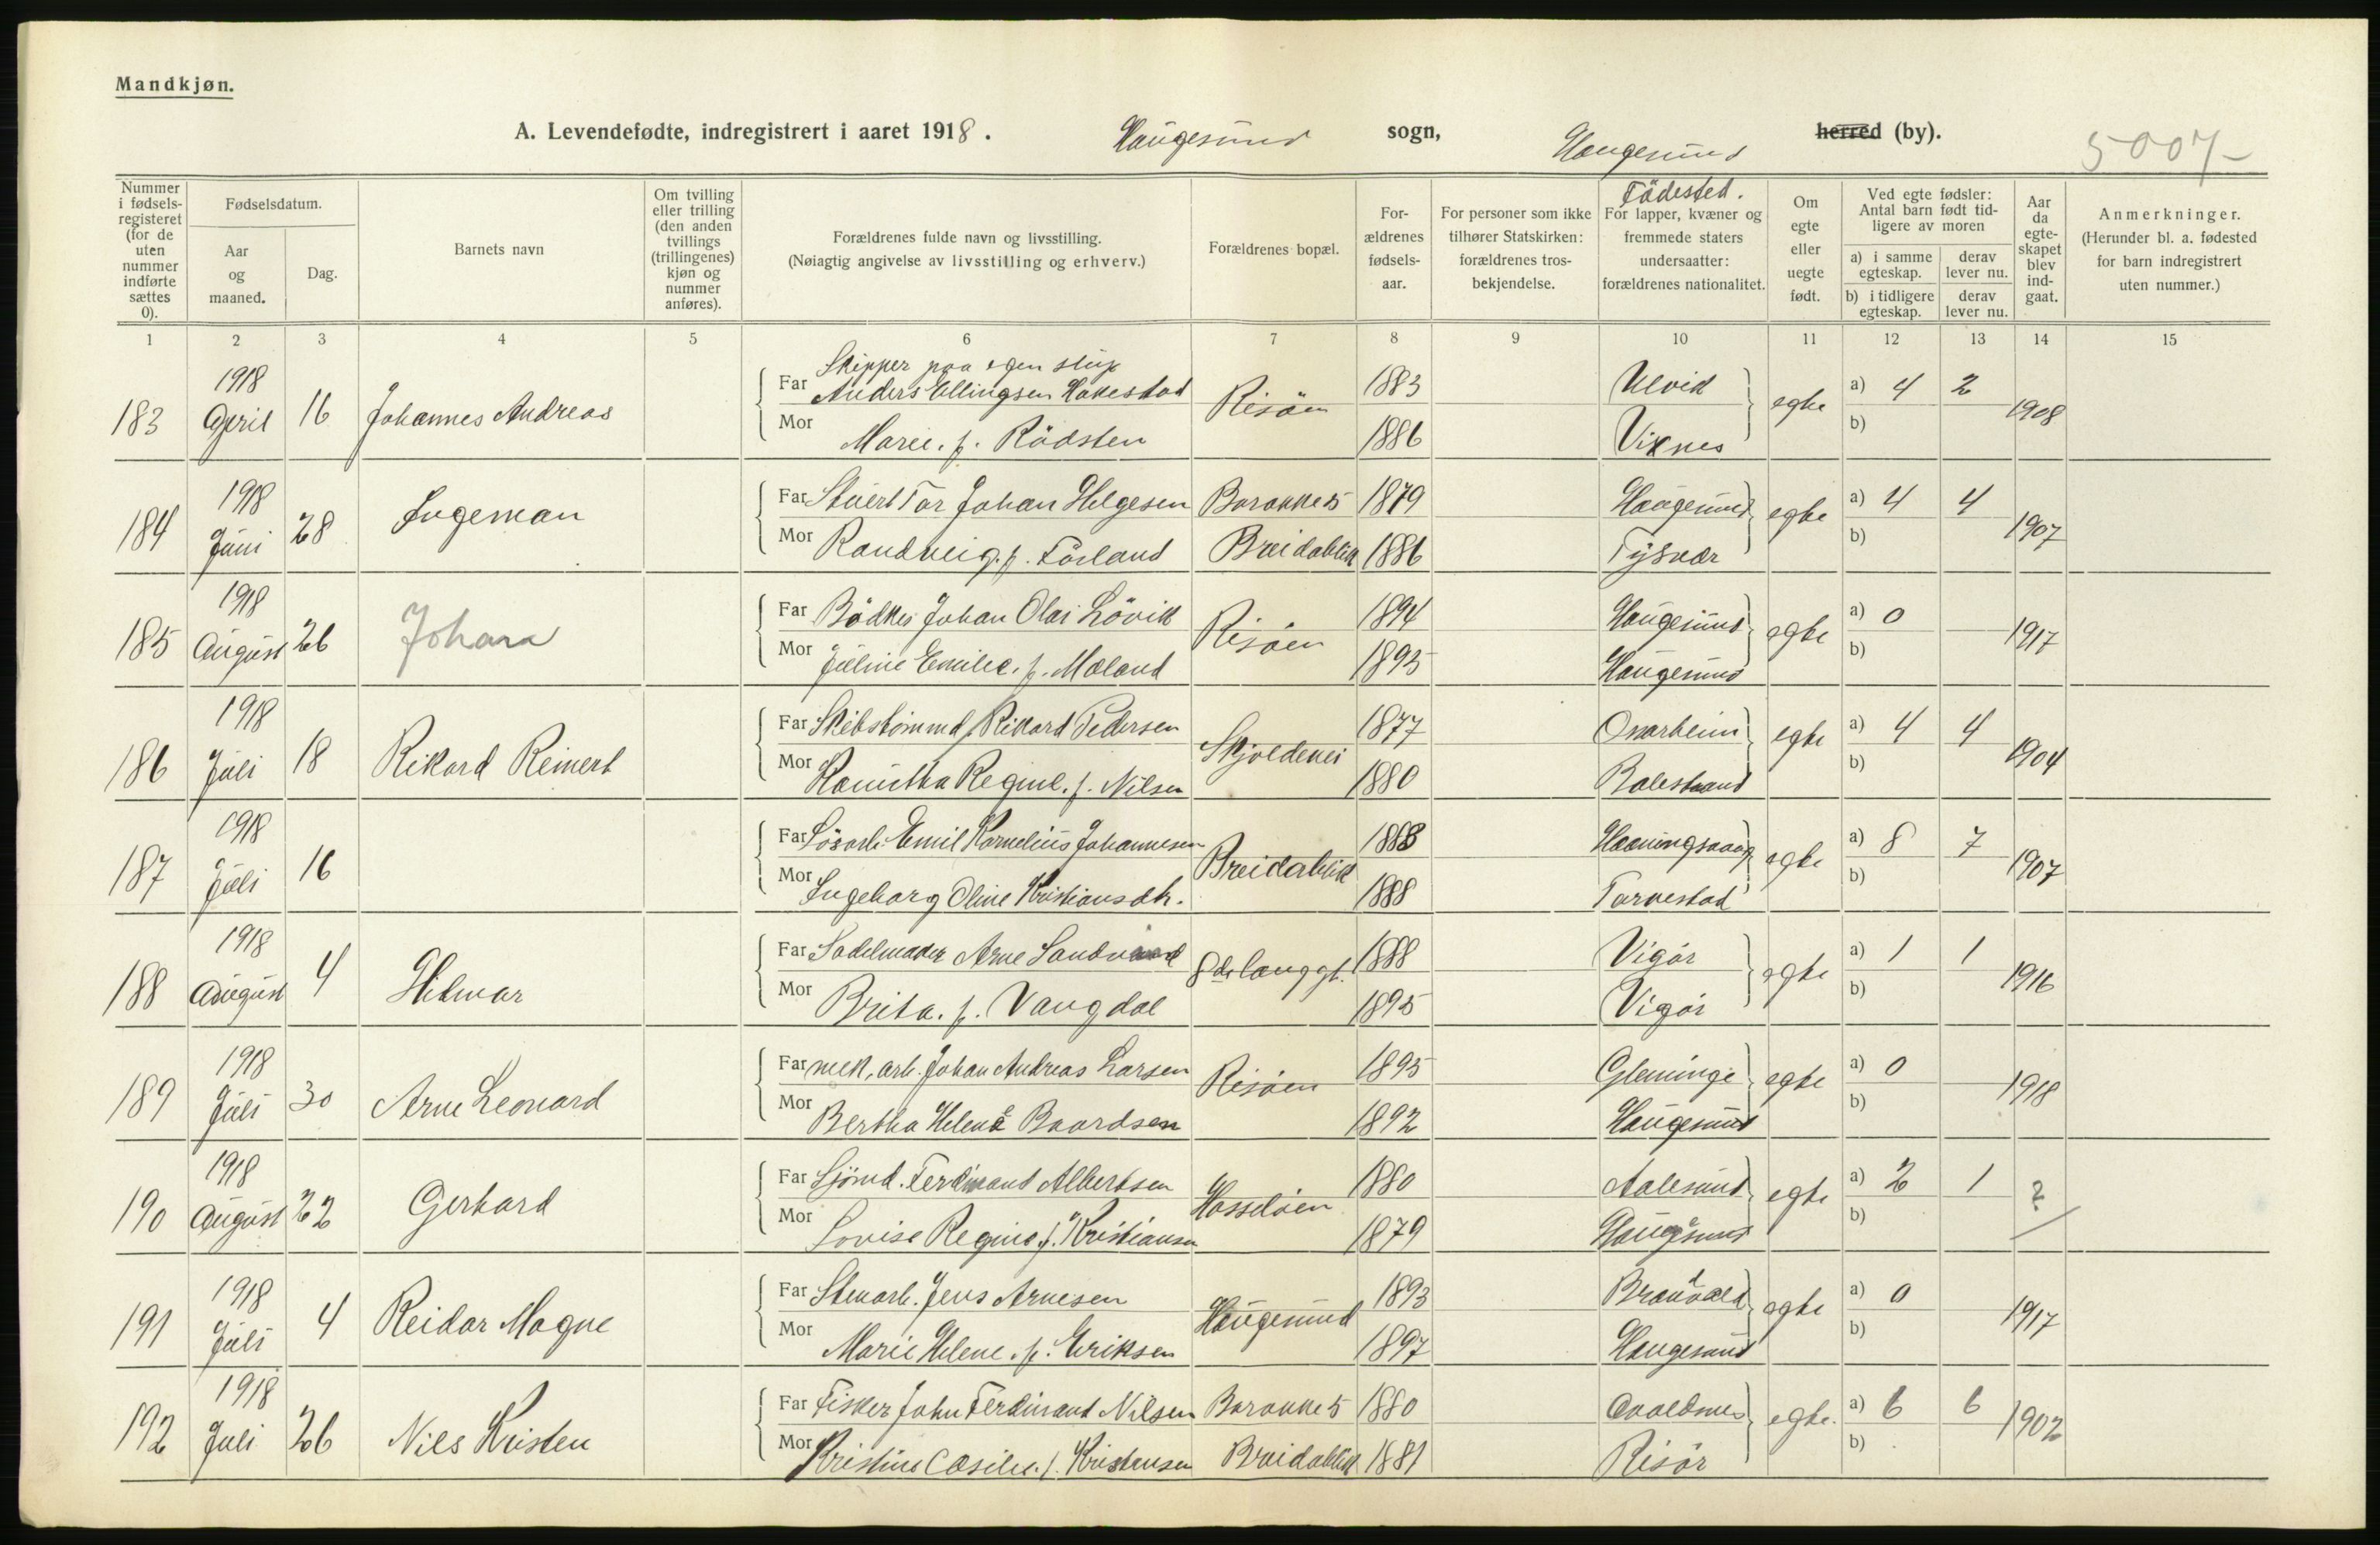 Mandkjøn.
A. Levendefødte, indregistrert i aaret 1918. Haugesund sogn, Haugesund herred (by). 5007-
Nummer i fødsels-registeret (for de uten nummer indførte sættes 0).
Fødselsdatum.
Aar og maaned.
Dag.
Barnets navn
Om tvilling eller trilling (den anden tvillings (trillingenes) kjøn og nummer anføres).
Forældrenes fulde navn og livsstilling.
(Nøiagtig angivelse av livsstilling og erhverv.)
Forældrenes bopæl.
For-ældrenes fødsels-aar.
For personer som ikke tilhører Statskirken: forældrenes tros-bekjendelse.
Födested.
For lapper, kvæner og fremmede staters undersaatter: forældrenes nationalitet.
Om egte eller uegte født.
Ved egte fødsler: Antal barn født tid-ligere av moren
a) i samme egteskap. derav lever nu.
b) i tidligere egteskap. derav lever nu.
Aar da egte-skapet blev ind-gaat.
Anmerkninger.
(Herunder bl. a. fødested for barn indregistrert uten nummer.)
1 2 3 4 5 6 7 8 9 10 11 12 13 14 15
183 1918 April 16 Johannes Andreas
Skipper paa egen
Far Anders Ellingsen Hakestad Risöen 1883 Ulvid egte a) 4 2 1908
Mor Marie. f. Rödsten 1886 Viknes b)
184 1918 Juni 28 Ingeman
Far Stuert Tor Johan Helgesen Barakke 5 1879 Haugesund egte a) 4 4 1907
Mor Randveig. f. Försland Breidablik 1886 Tysvær b)
185 1918 August 26 Johan
Far Bödker Johan Olai Lövik Risöen 1894 Haugesund egte a) 0 1917
Mor Juline Emilie. f. Mæland 1895 Haugesund b)
186 1918 Juli 18 Rikard Reinert
Far Skibstömmd Rikard Pedersen Skjoldevei 1877 egte a) 4 4 1904
Mor Regine. f. Nilsen 1880 Balestrand b)
187 1918 Juli 16
Far Lösarb. Emil Kornelius Johannesen Breidablik 1888 Honningsvaag egte a) 8 7 1907
Mor Ingeborg Oline Kristiansdt. 1888 Torvestad b)
188 1918 August 4 Hilmar
Far Sadelmaker Arne Sandvand 8de langgt. 1888 Vigör egte a) 1 1 1916
Mor Brita. f. Vangdal 1895 Vigör b)
189 1918 Juli 30 Arne Leonard
Far mek. arb. Johan Andreas Larsen Risöen 1895 Gleminge egte a) 0 1918
Mor Bertha Helene Baardsen 1892 Haugesund b)
190 1918 August 22 Gerhard
Far Sjömd. Ferdinand Albertsen Hasselöen 1880 Aalesund egte a) 2 1 ?
Mor Lovise Regine f. Kristiansen 1879 Haugesund b)
191 1918 Juli 4 Reidar Magne
Far Stenarb. Jens Arnesen Haugesund 1893 egte a) 0 1917
Mor Marie Helene. f. Eriksen 1897 Haugesund b)
192 1918 Juli 26 Nils Kristen
Far Fisker John Ferdinand Nilsen Barakke 5 1880 Avaldsnes egte. a) 6 6 1902
Mor Kristine f. Kristensen Breidablik 1881 Risör b)